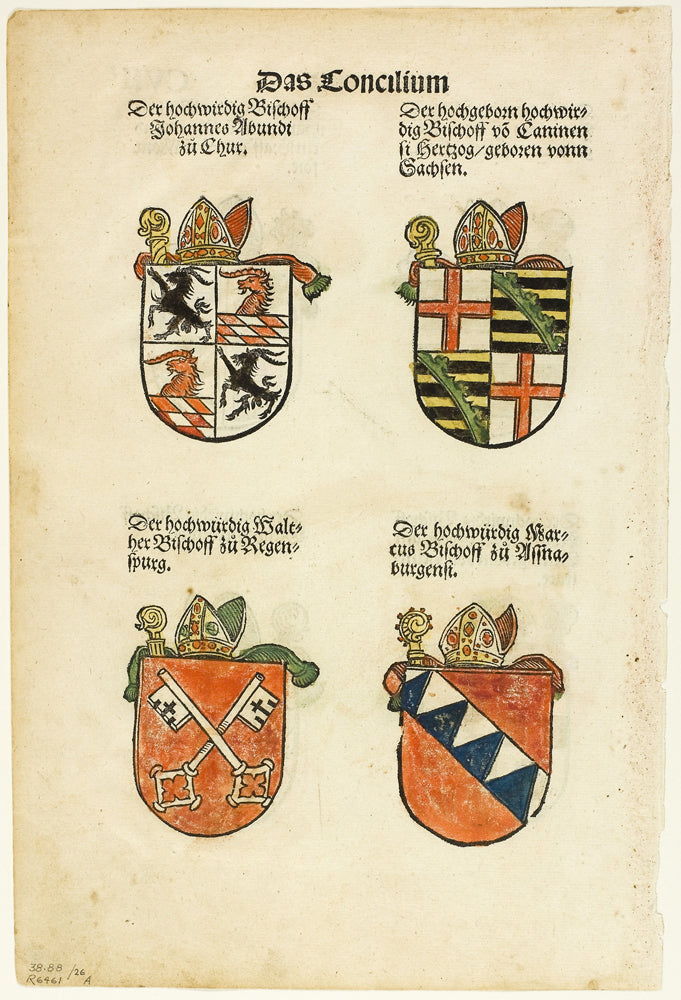 Das Concilium
Der hochwirdig Bischoff
Johannes Abundi
zů Chur.
Der hochgeborn hochwir⸗
dig Bischoff võ Caninen
si Hertzog/geboren vonn
Sachsen.
Der hochwürdig Walt⸗
her Bischoff zů Regen⸗
spurg.
Der hochwürdig Mar⸗
cus Bischoff zů Assna⸗
burgensi.
38.88 /26
R6461 A